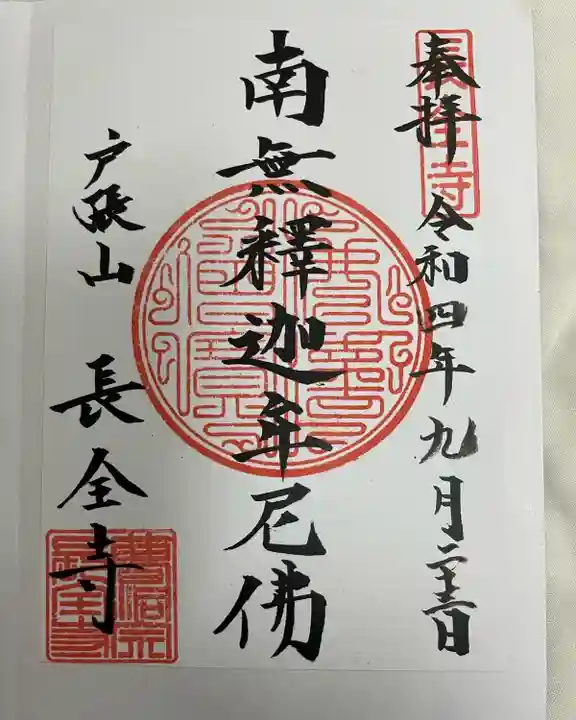 奉拝 令和四年九月二十三日
南無釋迦牟尼佛
戸張山 長全寺
長全寺